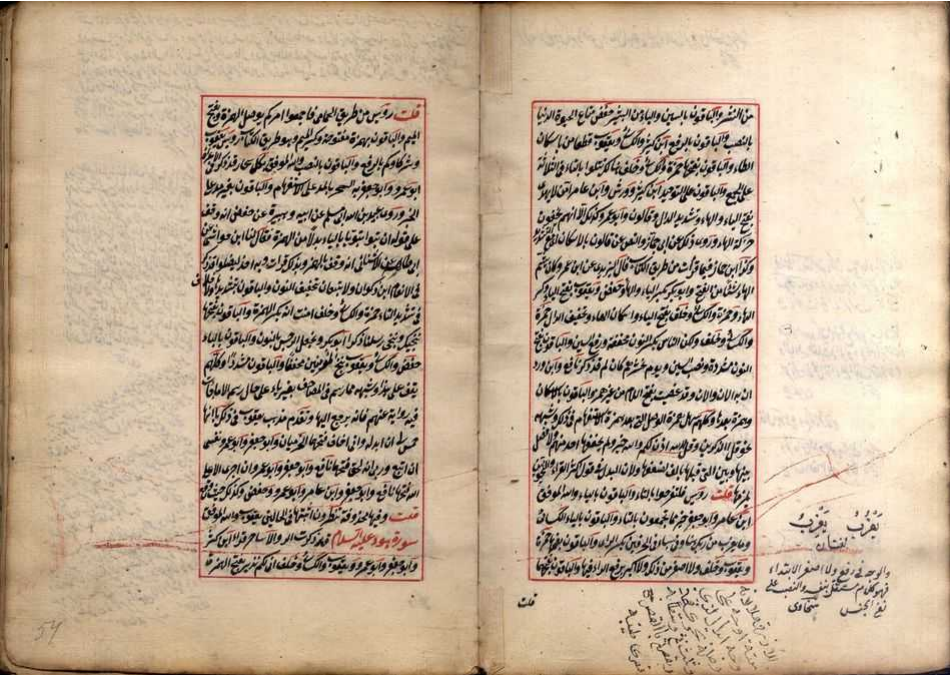 من النشر والباقون بالسين والياء من التسيير حفص متاع الحيوة الدنيا
بالنصب والباقون بالرفع ابن كثير والكسائي ويعقوب قطعا من باسكان
الطاء والباقون بفتحها حمزة والكسائي وخلف هنالك تتلوا بالتاء في الثلاثة
على الجمع والباقون على التوحيد ابن كثير وورش وابن عامر امن لا يهدي
بفتح الياء والهاء وتشديد الدال وقالون وابو عمرو كذلك الا انهم يخفون
حركة الهاء وروى ذلك عن ابن جماز والنص عن قالون بالاسكان ابو جعفر
وكذا ابن جماز فيما قرات من طريق الكتاب قال اليزيدي عن ابي عمرو كان يشم
الهاء شيئا من الفتح وابو بكر بكسر الياء والهاء وحفص ويعقوب بفتح الياء وكسر
الهاء وحمزة والكسائي وخلف بفتح الياء واسكان الهاء وتخفيف الدال حمزة
والكسائي وخلف ولكن الناس بكسر النون مخففة ورفع السين والباقون بفتح
النون مشددة ونصب السين ويوم نحشرهم كان لم قد ذكر نافع وابن وردان
ان به الان والان وقد عصيت بفتح اللام من غير همز والباقون باسكان
وهمزة بعدها وكلهم سهل همزة الوصل التي بعد همزة الاستفهام في ذلك وشبهه
نحو قل الذكرين وقل الله اذن لكم والله خير ولم يحققها احد منهم ولا فصل
بينها وبين التي قبلها بالف لضعفها ولان البدل في قول اكثر القراء والنحويين
يلزمها قلت رويس فلتفرحوا بالتاء والباقون بالياء والله الموفق
ابن عامر وابو جعفر خير مما تجمعون بالتاء والباقون بالياء الكسائي
وما يعزب عن ربك هنا وفي سبا في الحرفين بكسر الزاي والباقون بضمها حمزة
ويعقوب وخلف ولا اصغر من ذلك ولا اكبر برفع الراء فيهما والباقون بفتحها
يَعْزُبُ يَعْزِبُ
لغتان
والوجه في رفع ولا اصغر الابتداء
فهو كلام مستقل بنفسه والنصب على
نفي الجنس سخاوي
قلت
قلت رويس من طريق الحمامي فاجمعوا امركم بوصل الهمزة وفتح
الميم والباقون بهمزة مفتوحة وكسر الميم وهو طريق الكتاب رويس يعقوب
وشركاوكم بالرفع والباقون بالنصب والله الموفق بكل سحار قد ذكر في الاعراف
ابو عمرو وابو جعفر به السحر بالمد على الاستفهام والباقون بغير مد على
الخبر وروى عبيد بن الله ابي مسلم عن ابيه وهبيرة عن حفص انه وقف
على قوله ان تبوا تبويا بالياء بدلا من الهمزة فقال لنا ابن خواستي
ابي طاهر عن الاشناني انه وقف بالهمز وبذلك قرات وبه اخذ ليضلوا قد ذكر
في الانعام ابن ذكوان ولا تتبعان بتخفيف النون والباقون بتشديدها ولا خلاف
في تشديد التاء حمزة والكسائي وخلف امنت انه بكسر الهمزة والباقون بفتحها
ننجيك وننجي رسلنا ذكر ابو بكر ونجعل الرجس بالنون والباقون بالياء
حفص والكسائي ويعقوب ننج المؤمنين مخففا والباقون مشددا وكلهم
يقف على هذا وشبهه مما رسم في المصاحف بغير ياء على حال رسمه الا ما جاءت
فيه رواية عنهم فانه يرجع اليها وقد تقدم مذهب يعقوب في ذلك ياءاتها
خمس لي ان ابدله واني اخاف فتحهما الحرميان وابو جعفر وابو عمرو ونفسي
ان اتبع وربي انه لحق فتحهما نافع وابو جعفر وابو عمرو وان اجري الا على
الله فتحها نافع وابو جعفر وابن عامر وابو عمرو وحفص وكذلك حيث وقع
قلت وفيها محذوفة تنظرون اثبتها في الحالين يعقوب والله الموفق
سورة هود عليه السلام قد ذكرت الر والا ساحر قرا ابن كثير
وابو جعفر وابو عمرو ويعقوب والكسائي وخلف اني لكم نذير بفتح الهمزة
54